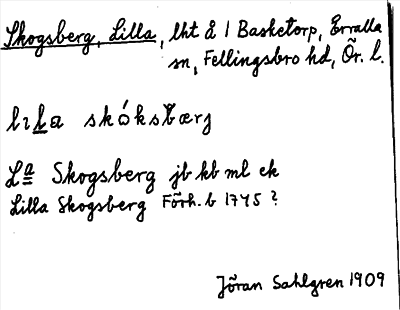 Skogsberg, Lilla, lht å 1 Basketorp, Ervalla
sn, Fellingsbro hd, Ör. l.
lɩla skóksbærj
La Skogsberg jb kb ml ek
Lilla Skogsberg Förh. b 1745 ?
Jöran Sahlgren 1909